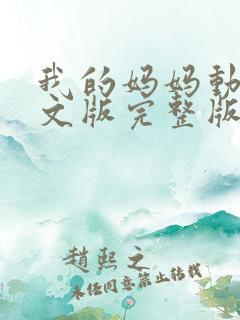 我的妈妈動
文版完整版
趙熙之
未经同意禁止转载